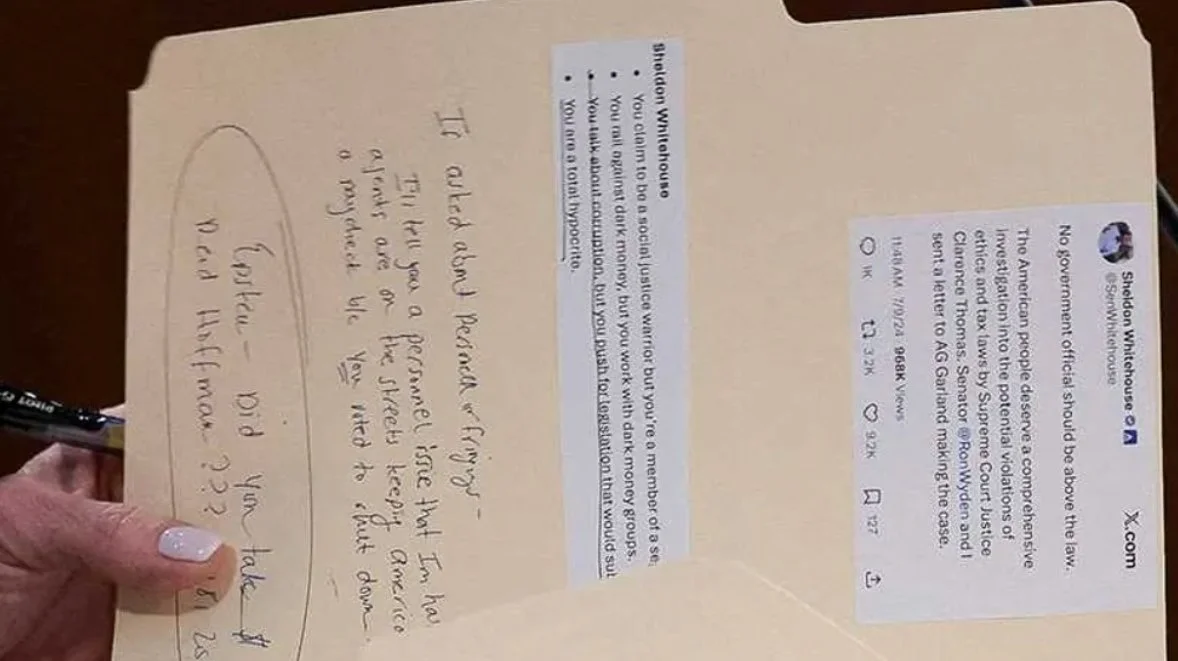 Sheldon Whitehouse
X.com
@SenWhitehouse
No government official should be above the law.
The American people deserve a comprehensive
investigation into the potential violations of
ethics and tax laws by Supreme Court Justice
Clarence Thomas. Senator @RonWyden and I
sent a letter to AG Garland making the case.
11:48 AM · 7/9/24 · 968K Views
1K 3.2K 9.2K 127
Sheldon Whitehouse
• You claim to be a social justice warrior but you're a member of a se
• You rail against dark money, but you work with dark money groups.
• You talk about corruption, but you push for legislation that would sub
• You are a total hypocrite.
If asked about Personnel or firings -
I'll tell you a personnel issue that I'm ha
agents are on the streets keeping America
a paycheck b/c you voted to shut down.
Epstein - Did you take $
Reid Hoffman??